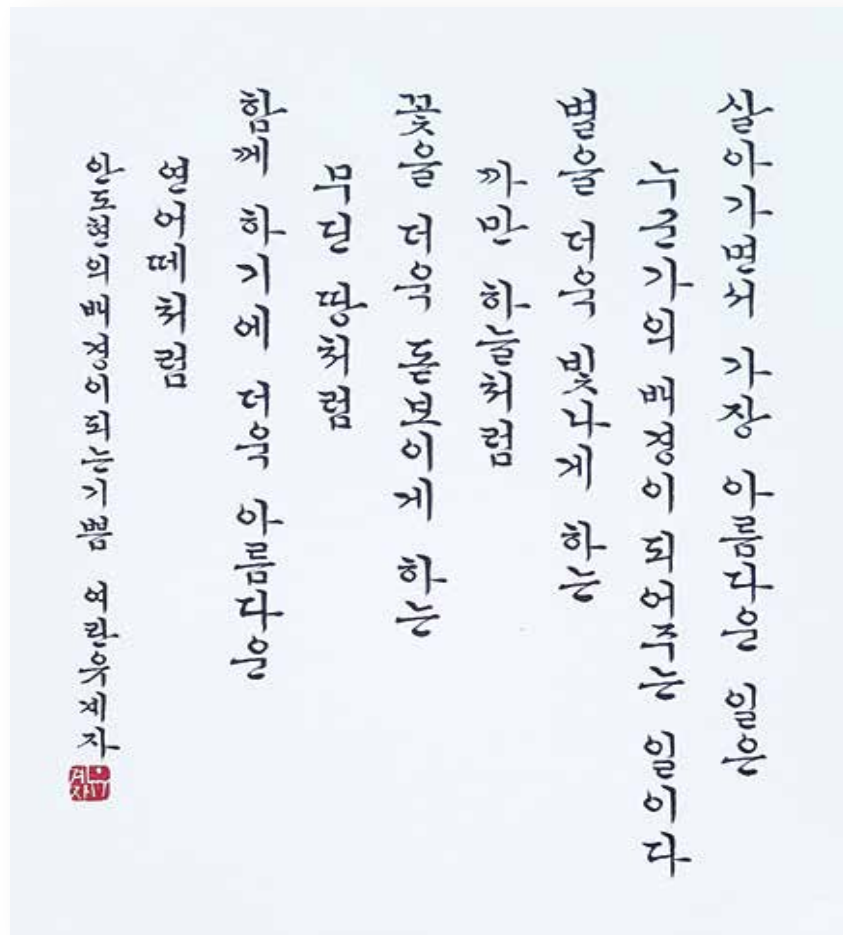 살아가면서 가장 아름다운 일은
누군가의 배경이 되어주는 일이다
별을 더욱 빛나게 하는
까만 하늘처럼
꽃을 더욱 돋보이게 하는
무딘 땅처럼
함께 하기에 더욱 아름다운
연어떼처럼
안도현의 배경이되는기쁨 여란유제자